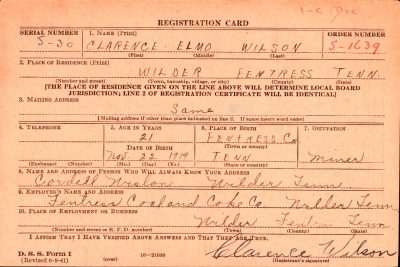 1-C Dec
REGISTRATION CARD
SERIAL NUMBER 1. NAME (Print) ORDER NUMBER
S-30 CLARENCE ELMO WILSON S-1639
(First) (Middle) (Last)
2. PLACE OF RESIDENCE (Print)
WILDER FENTRESS TENN.
(Number and street) (Town, township, village, or city) (County) (State)
[THE PLACE OF RESIDENCE GIVEN ON THE LINE ABOVE WILL DETERMINE LOCAL BOARD
JURISDICTION; LINE 2 OF REGISTRATION CERTIFICATE WILL BE IDENTICAL]
3. MAILING ADDRESS
Same
[Mailing address if other than place indicated on line 2. If same insert word same]
4. TELEPHONE 5. AGE IN YEARS 6. PLACE OF BIRTH 7. OCCUPATION
21 FENTRESS Co
DATE OF BIRTH (Town or county)
Nov. 22 1919 TENN Miner
(Exchange) (Number) (Mo.) (Day) (Yr.) (State or country)
8. NAME AND ADDRESS OF PERSON WHO WILL ALWAYS KNOW YOUR ADDRESS
Wilder Tenn
9. EMPLOYER'S NAME AND ADDRESS
Fentress Coal and Coke Co. Wilder Tenn
10. PLACE OF EMPLOYMENT OR BUSINESS
Wilder Tenn
(Number and street or R. F. D. number) (Town) (County) (State)
I AFFIRM THAT I HAVE VERIFIED ABOVE ANSWERS AND THAT THEY ARE TRUE.
D. S. S. Form 1 Clarence Wilson
(Revised 6-9-41) (over) 16—21630 (Registrant's signature)